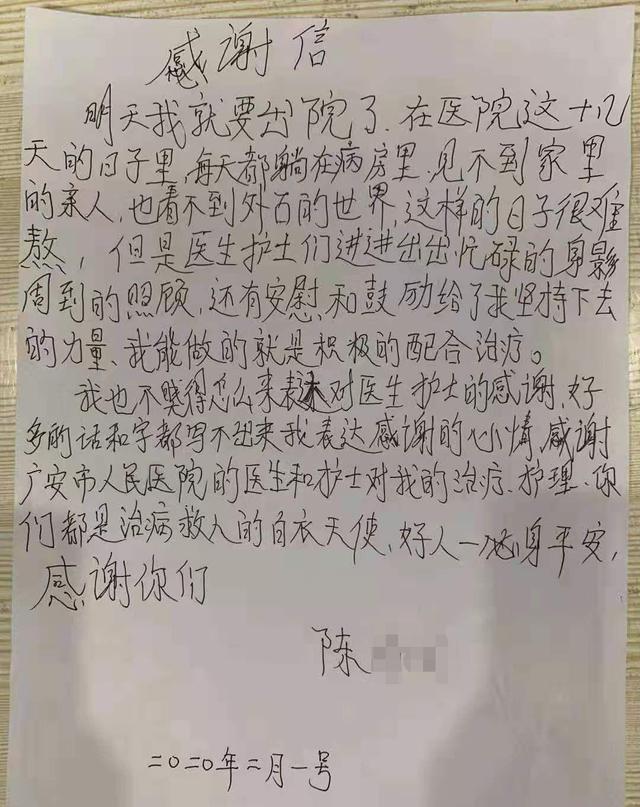 感谢信
明天我就要出院了.在医院这十几
天的日子里,每天都躺在病房里,见不到家里
的亲人,也看不到外面的世界,这样的日子很难
熬,但是医生护士们进进出出忙碌的身影
周到的照顾,还有安慰和鼓励给了我坚持下去
的力量、我能做的就是积极的配合治疗。
我也不晓得怎么来表对医生护士的感谢,好
多的话和字都写不出来我表达感谢的心情,感谢
广安市人民医院的医生和护士对我的治疗、护理、你
们都是治病救人的白衣天使,好人一身平安,
感谢你们
陈
二〇二〇年二月一号